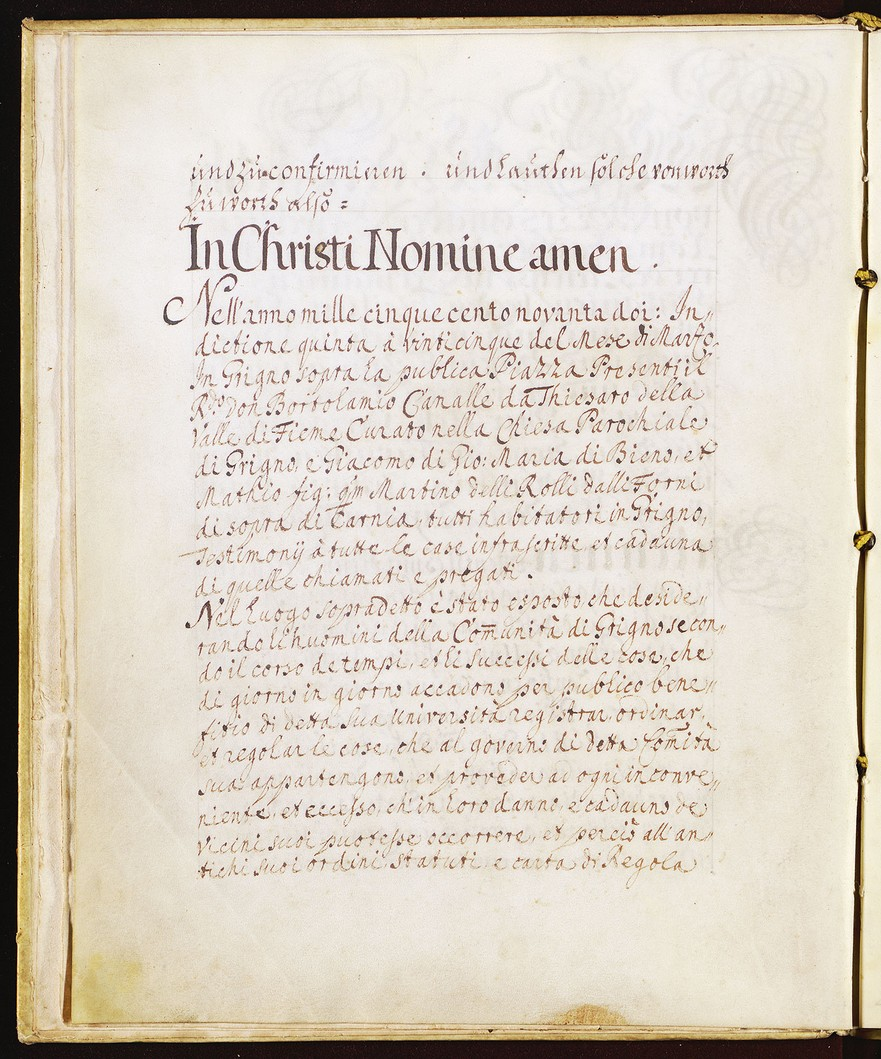 und zu confirmieren . und lauthen solche von worth
zu worth also =
In Christi Nomine amen .
Nell'anno mille cinque cento novanta doi: In„
dictione quinta à vinticinque del Mese di Marzo.
In Grigno sopra la publica Piazza Presenti il
Rdo don Bortolamio Canalle da Thiesaro della
Valle di Fieme Curato nella Chiesa Parochiale
di Grigno, e Giacomo di Gio: Maria di Bieno, et
Mathio fig: qm Martino delli Rolli dalli Forni
di sopra di Carnia, tutti habitatori in Grigno,
Testimonij à tutte le cose infrascritte et cadauna
di quelle chiamati e pregati .
Nel luogo sopradetto è stato esposto, che deside„
rando li huomini della Com̅unità di Grigno secon„
do il corso de tempi, et li successi delle cose, che
di giorno in giorno accadono per publico bene„
fitio di detta sua Università registrar, ordinar,
et regolar le cose, che al governo di detta Com̅ità
sua appartengono, et proveder ad ogni inconve„
niente, et eccesso, ch'in loro danno, e cadauno de
vicini suoi puotesse occorrere, et perciò all'an„
tichi suoi ordini, statuti, e carta di Regola